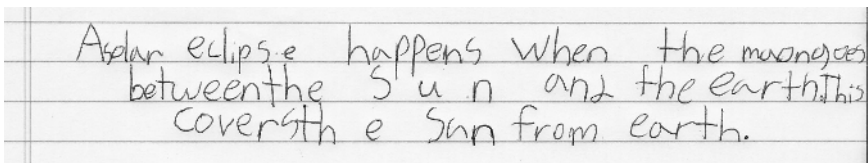 A solar eclipse happens when the moon goes
between the Sun and the earth. This
covers the Sun from earth.